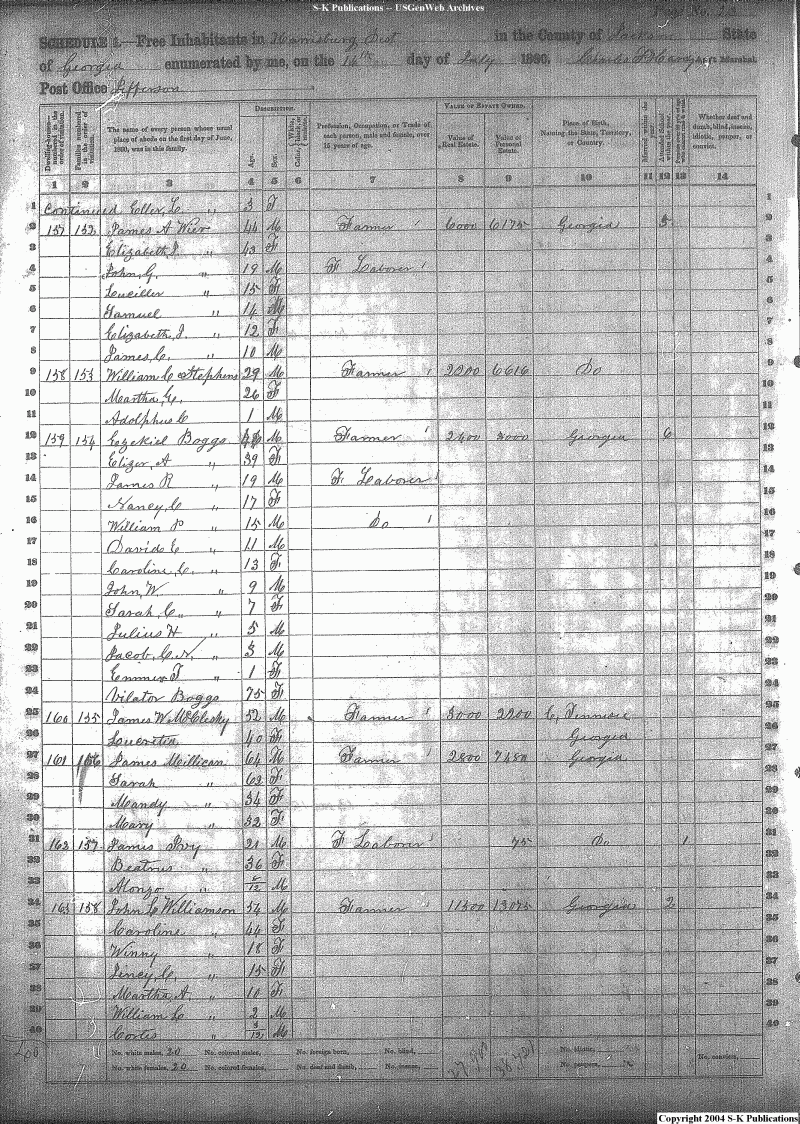 S-K Publications -- USGenWeb Archives
Page No. 22
SCHEDULE 1.—Free Inhabitants in Harrisburg Dist in the County of Jackson State
of Georgia enumerated by me, on the 14th day of July 1860. Charles Hardy Ass't Marshal.
Post Office Jefferson
Dwelling-houses—numbered in the order of visitation.
Families numbered in the order of visitation.
The name of every person whose usual place of abode on the first day of June, 1860, was in this family.
DESCRIPTION.
Age.
Sex.
Color, White, black, or mulatto.
Profession, Occupation, or Trade of each person, male and female, over 15 years of age.
VALUE OF ESTATE OWNED.
Value of Real Estate.
Value of Personal Estate.
Place of Birth, Naming the State, Territory, or Country.
Married within the year.
Attended School within the year.
Whether deaf and dumb, blind, insane, idiotic, pauper, or convict.
1 2 3 4 5 6 7 8 9 10 11 12 13 14
1 Continued Eller, L " 3 F 1
2 157 152 James A Wier 44 M Farmer 6000 6175 Georgia 5 2
3 Elizabeth J. " 43 F 3
4 John, G. " 19 M F Laborer 4
5 Luciller " 15 F 5
6 Samuel " 14 M 6
7 Elizabeth, J. " 12 F 7
8 James, C. " 10 M 8
9 158 153 William C Stephens 29 M Farmer 2200 6616 Do 9
10 Martha, E. 26 F 10
11 Adolphus C 1 M 11
12 159 154 Ezekiel Boggs M Farmer 2400 3000 Georgia 6 12
13 Elizer, A " 39 F 13
14 James R " 19 M F Laborer 14
15 Nancy, C " 17 F 15
16 William P " 15 M Do 16
17 David E " 11 M 17
18 Caroline, C. " 13 F 18
19 John, W. " 9 M 19
20 Sarah, C. " 7 F 20
21 Julius H " 5 M 21
22 Jacob, C. N. " 3 M 22
23 Emmer F " 1 F 23
24 Vilator Boggs 75 F 24
25 160 155 James W. McClesky 52 M Farmer 3000 2200 E, Tennesse 25
26 Loucretia, 40 F Georgia 26
27 161 156 James Millican 64 M Farmer 2800 7480 Georgia 27
28 Sarah " 62 F 28
29 Mandy " 34 F 29
30 Mary " 32 F 30
31 162 157 James Ivy 21 M F Laborer 75 Do 1 31
32 Beatrus " 36 F 32
33 Alonzo " M 33
34 163 158 John C Williamson 54 M Farmer 11500 13075 Georgia 2 34
35 Caroline " 44 F 35
36 Winny " 18 F 36
37 Lincy, C. " 15 F 37
38 Martha, A. " 10 F 38
39 William C " 2 M 39
40 Cortes " M 40
No. white males, 20 No. colored males, No. foreign born, No. blind, No. idiotic,
No. white females, 20 No. colored females, No. deaf and dumb, No. insane, No. paupers, No. convicts,
Copyright 2004 S-K Publications